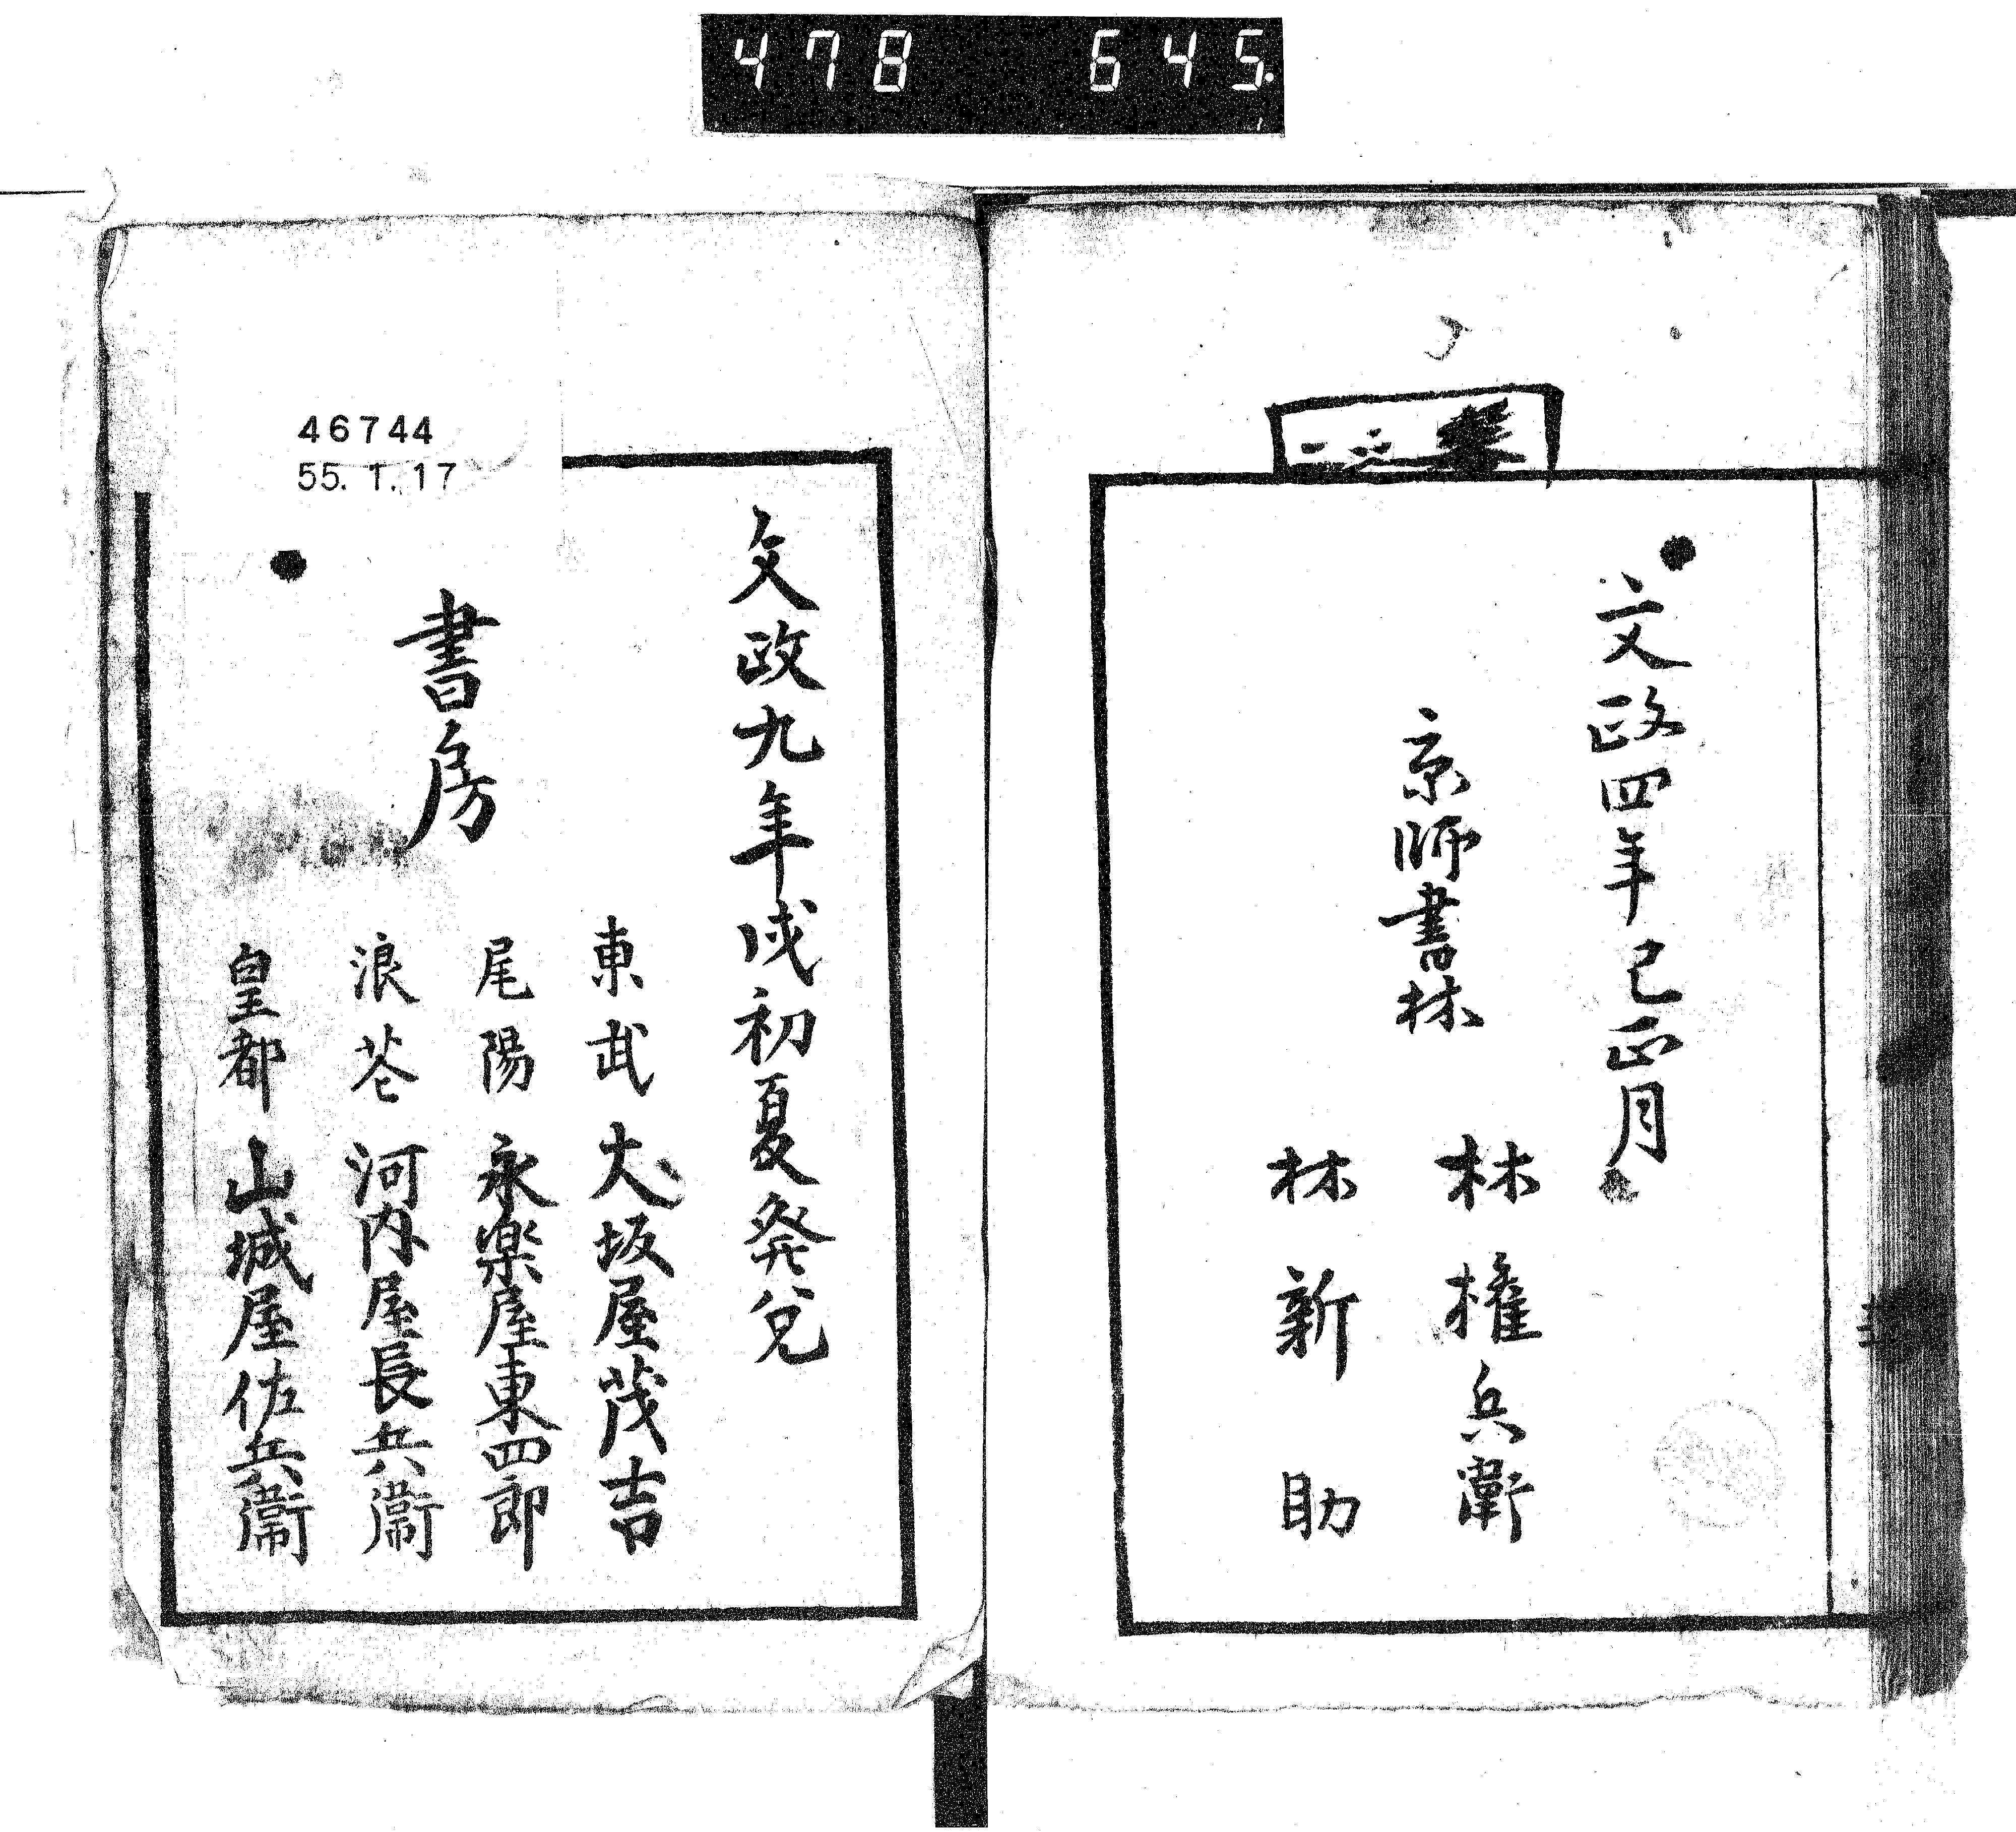 478 645
文政四年巳正月
京師書林
林権兵衛
林新助
46744
55.1.17
文政九年戌初夏発兌
書房
東武 大坂屋茂吉
尾陽 永楽屋東四郎
浪苍 河内屋長兵衛
皇都 山城屋佐兵衛